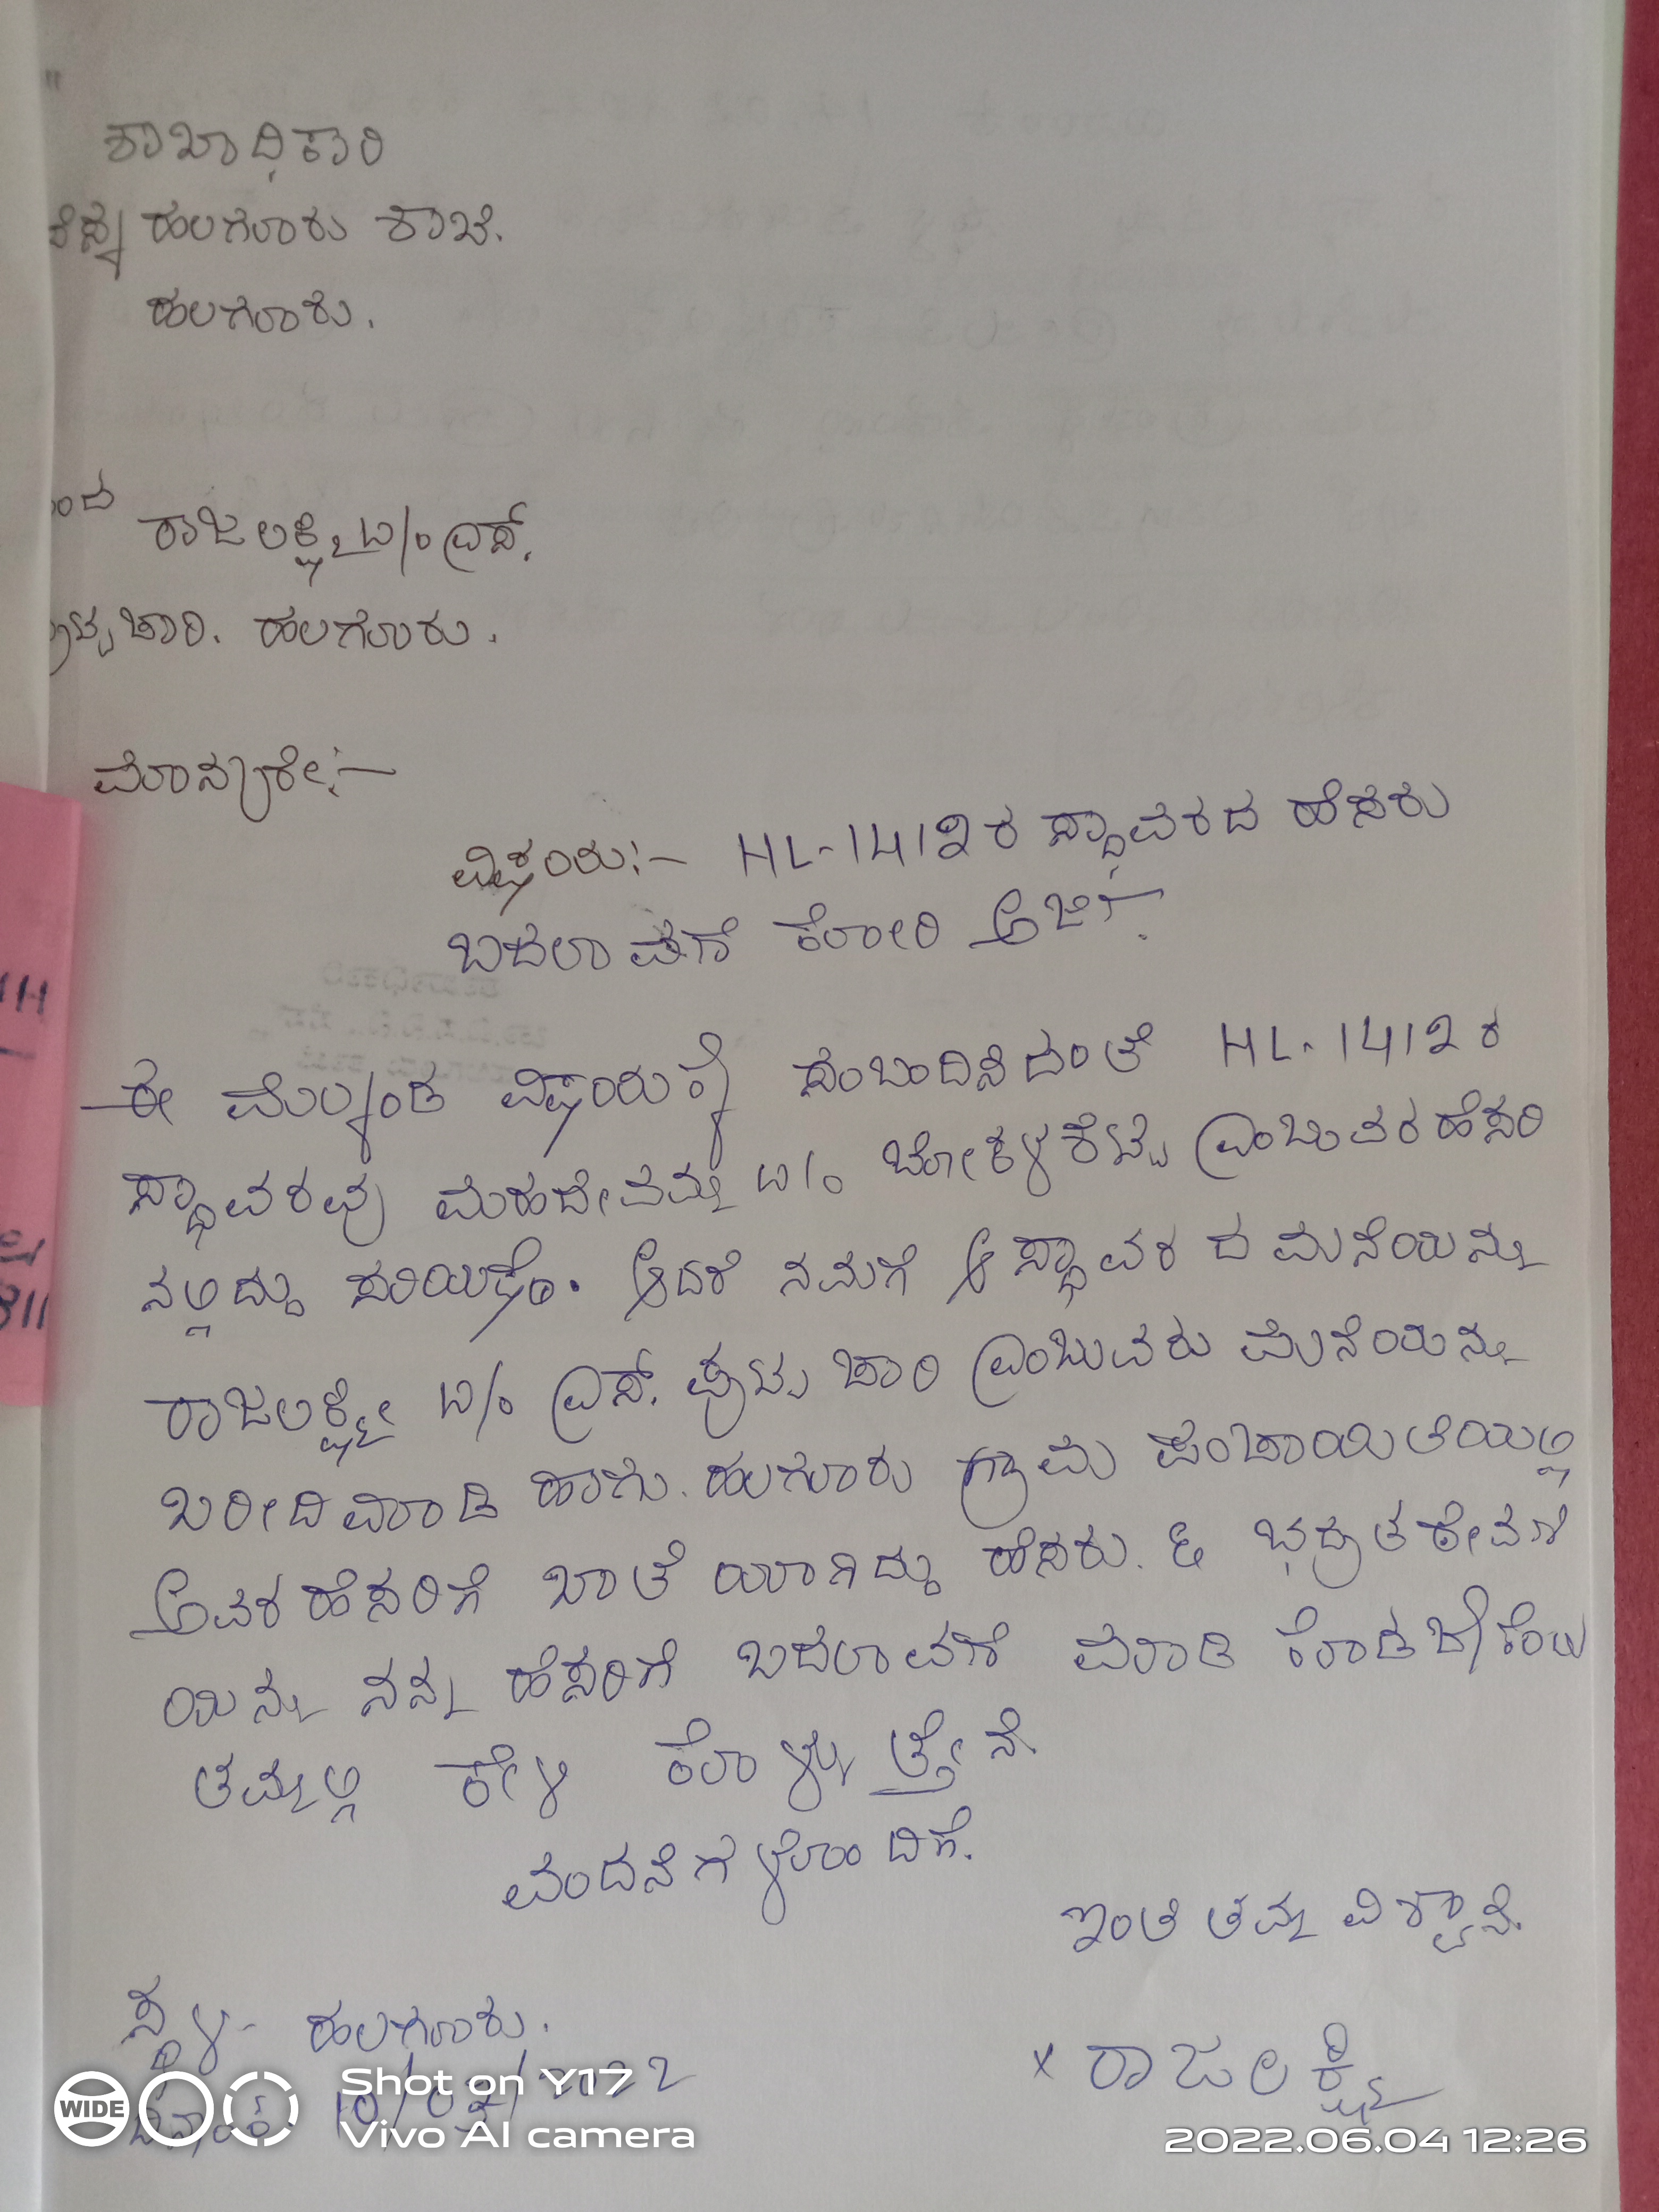 ಶಾಖಾಧಿಕಾರಿ
ಹಲಗೂರು ಶಾಖೆ.
ಹಲಗೂರು.
ರಾಜಲಕ್ಷ್ಮಿ W/o ಎಸ್.
ಪುಟ್ಟಚಾರಿ. ಹಲಗೂರು.
ಮಾನ್ಯರೇ:-
ವಿಷಯ:- HL-1412ರ ಸ್ಥಾವರದ ಹೆಸರು
ಬದಲಾವಣೆ ಕೋರಿ ಅರ್ಜಿ.
ಈ ಮೆಲ್ಯಂಡ ವಿಷಯಕ್ಕೆ ಸಂಬಂದಿಸಿದಂತೆ HL-1412ರ
ಸ್ಥಾವರವು ಮಹದೇವಮ್ಮ W/o ಎಂಬುವರ ಹೆಸರಿ
ನಲ್ಲಿದ್ದು ಸರಿಯಷ್ಟೇ. ಆದರೆ ನಮಗೆ ಆ ಸ್ಥಾವರದ ಮನೆಯನ್ನು
ರಾಜಲಕ್ಷ್ಮೀ W/o ಎಸ್. ಪುಟ್ಟಚಾರಿ ಎಂಬುವರು ಮನೆಯನ್ನು
ಖರೀದಿ ಮಾಡಿ ಹಾಗು. ಹಲಗೂರು ಗ್ರಾಮ ಪಂಚಾಯಿತಿಯಲ್ಲಿ
ಅವರ ಹೆಸರಿಗೆ ಖಾತೆ ಯಾಗಿದ್ದು ಹೆಸರು. & ಭದ್ರತ ಠೇವಣಿ
ಯನ್ನು ನನ್ನ ಹೆಸರಿಗೆ ಬದಲಾವಣೆ ಮಾಡಿ ಕೊಡಬೇಕೆಂದು
ತಮ್ಮಲ್ಲಿ ಕೇಳಿ ಕೊಳ್ಳುತ್ತೇನೆ.
ವಂದನೆಗಳೊಂದಿಗೆ.
ಇಂತಿ ತಮ್ಮ ವಿಶ್ವಾಸಿ.
ಸ್ಥಳ- ಹಲಗೂರು.
x ರಾಜಲಕ್ಷ್ಮಿ
WIDE
Shot on Y17
Vivo AI camera
2022.06.04 12:26